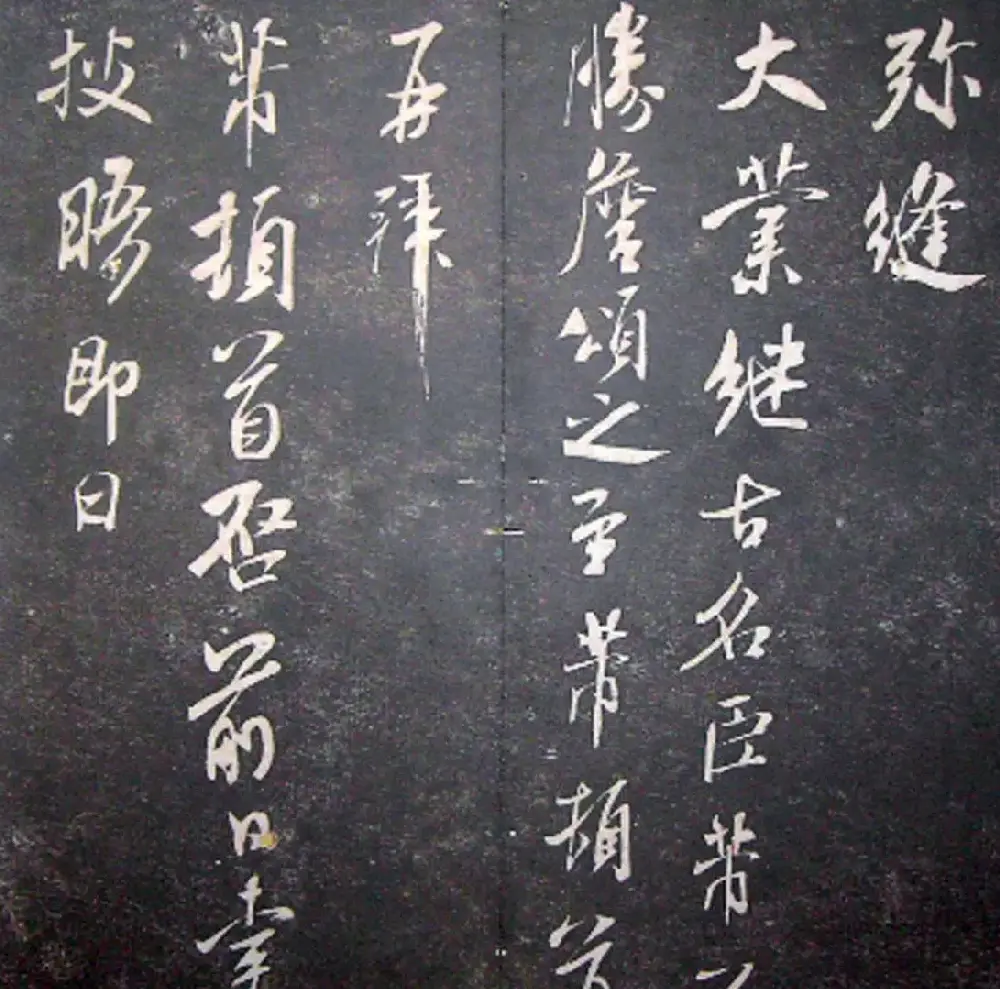 弥缝
大業継古名臣芾不
勝詹頌之至芾頓首
再拜
芾頓首啓前日幸
披晤即日